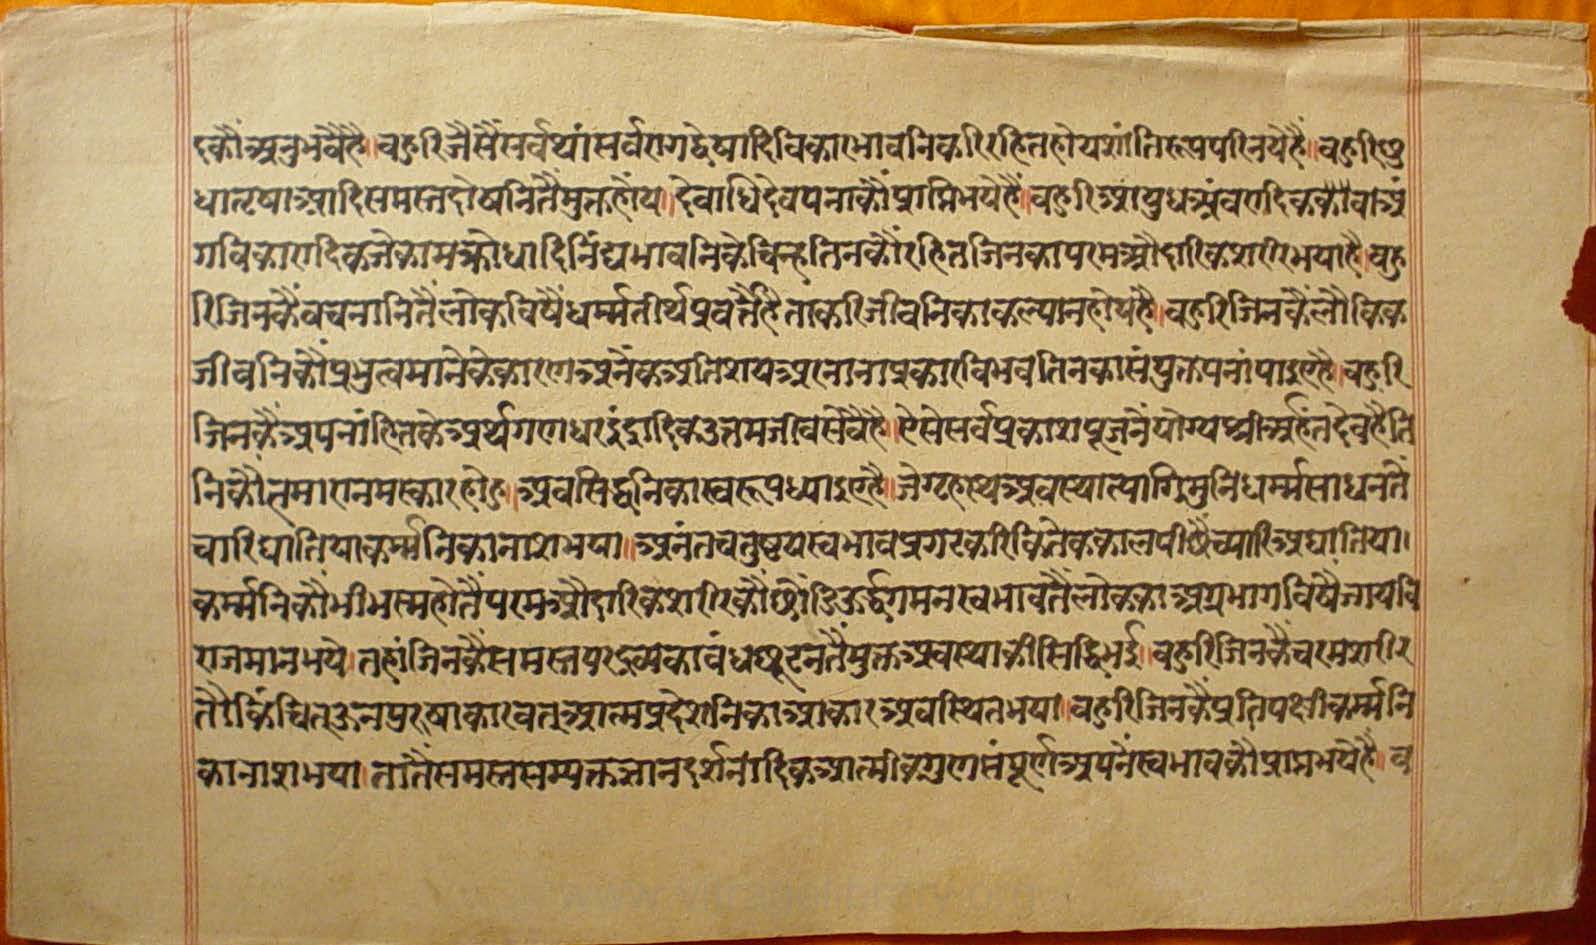 दकौंअनुभवैंहै।बहुरिजैसैंसर्वथांसर्वरागद्वेषादिविकारभावनिकरिरहितहोयशांतिरूपपरिनयेहैं।बहुरिक्षु
धातृषाआदिसमस्तदोषनितैंमुक्तहोंय।देवाधिदेवपनाकौंप्राप्तिभयेहैं।बहुरिआयुधअंबरादिककवाअं
गविकारादिकजेकामक्रोधादिनिंद्यभावनिकेचिन्हतिनकौंरहितजिनकापरमऔदारिकशरीरभयाहै।बहु
रिजिनकैंवचनानितैंलोकविषैंधर्म्मतीर्थप्रवर्तैहैताकरिजीवनिकाकल्यानहोयहै।बहुरिजिनकैंलौकिक
जीवनिकौंप्रभुत्वमानेकेकारणअनेंकअतिशयअरनानाप्रकारविभवतिनकासंयुक्तपनांपाइएहै।बहुरि
जिनकौंअपनांहितकेअर्थगणधरइंद्रादिकउतमजीवसेवैंहै।ऐसेसर्वप्रकारापूजनेंयोग्यश्रीअर्हंतदेवहैति
निकौंहमारानमस्कारहोहु।अवसिद्धनिकास्वरूपध्याइएहै।जेगृहस्थअवस्थात्यागिमुनिधर्म्मसाधनतैं
चारिघातियाकर्म्मनिकानाशभया।अनंतचतुष्टयस्वभावप्रगटकरिकितेककालपीछैंच्यारिअघातिया।
कर्म्मनिकौंभीभस्महोतैंपरमऔदारिकशरीरकौंछोंडिऊर्द्धगमनस्वभावतैंलोककाअग्रभागविषैंजायवि
राजमानभये।तहांजिनकैंसमस्तपरद्रव्यकावंधछूटनतैंमुक्तअवस्थाकीसिद्धिभई।बहुरिजिनकैंचरमशरीर
तौकिंचित्ऊनपुरुषाकारवतआत्मप्रदेशनिकाआकारअवस्थितभया।बहुरिजिनकैंप्रतिपक्षीकर्म्मनि
कानाशभया।तातैंसमस्तसम्यक्तज्ञानदर्शनादिकआत्मीकगुणसंपूर्णअपनेंस्वभावकौंप्राप्तभयेहै।ब